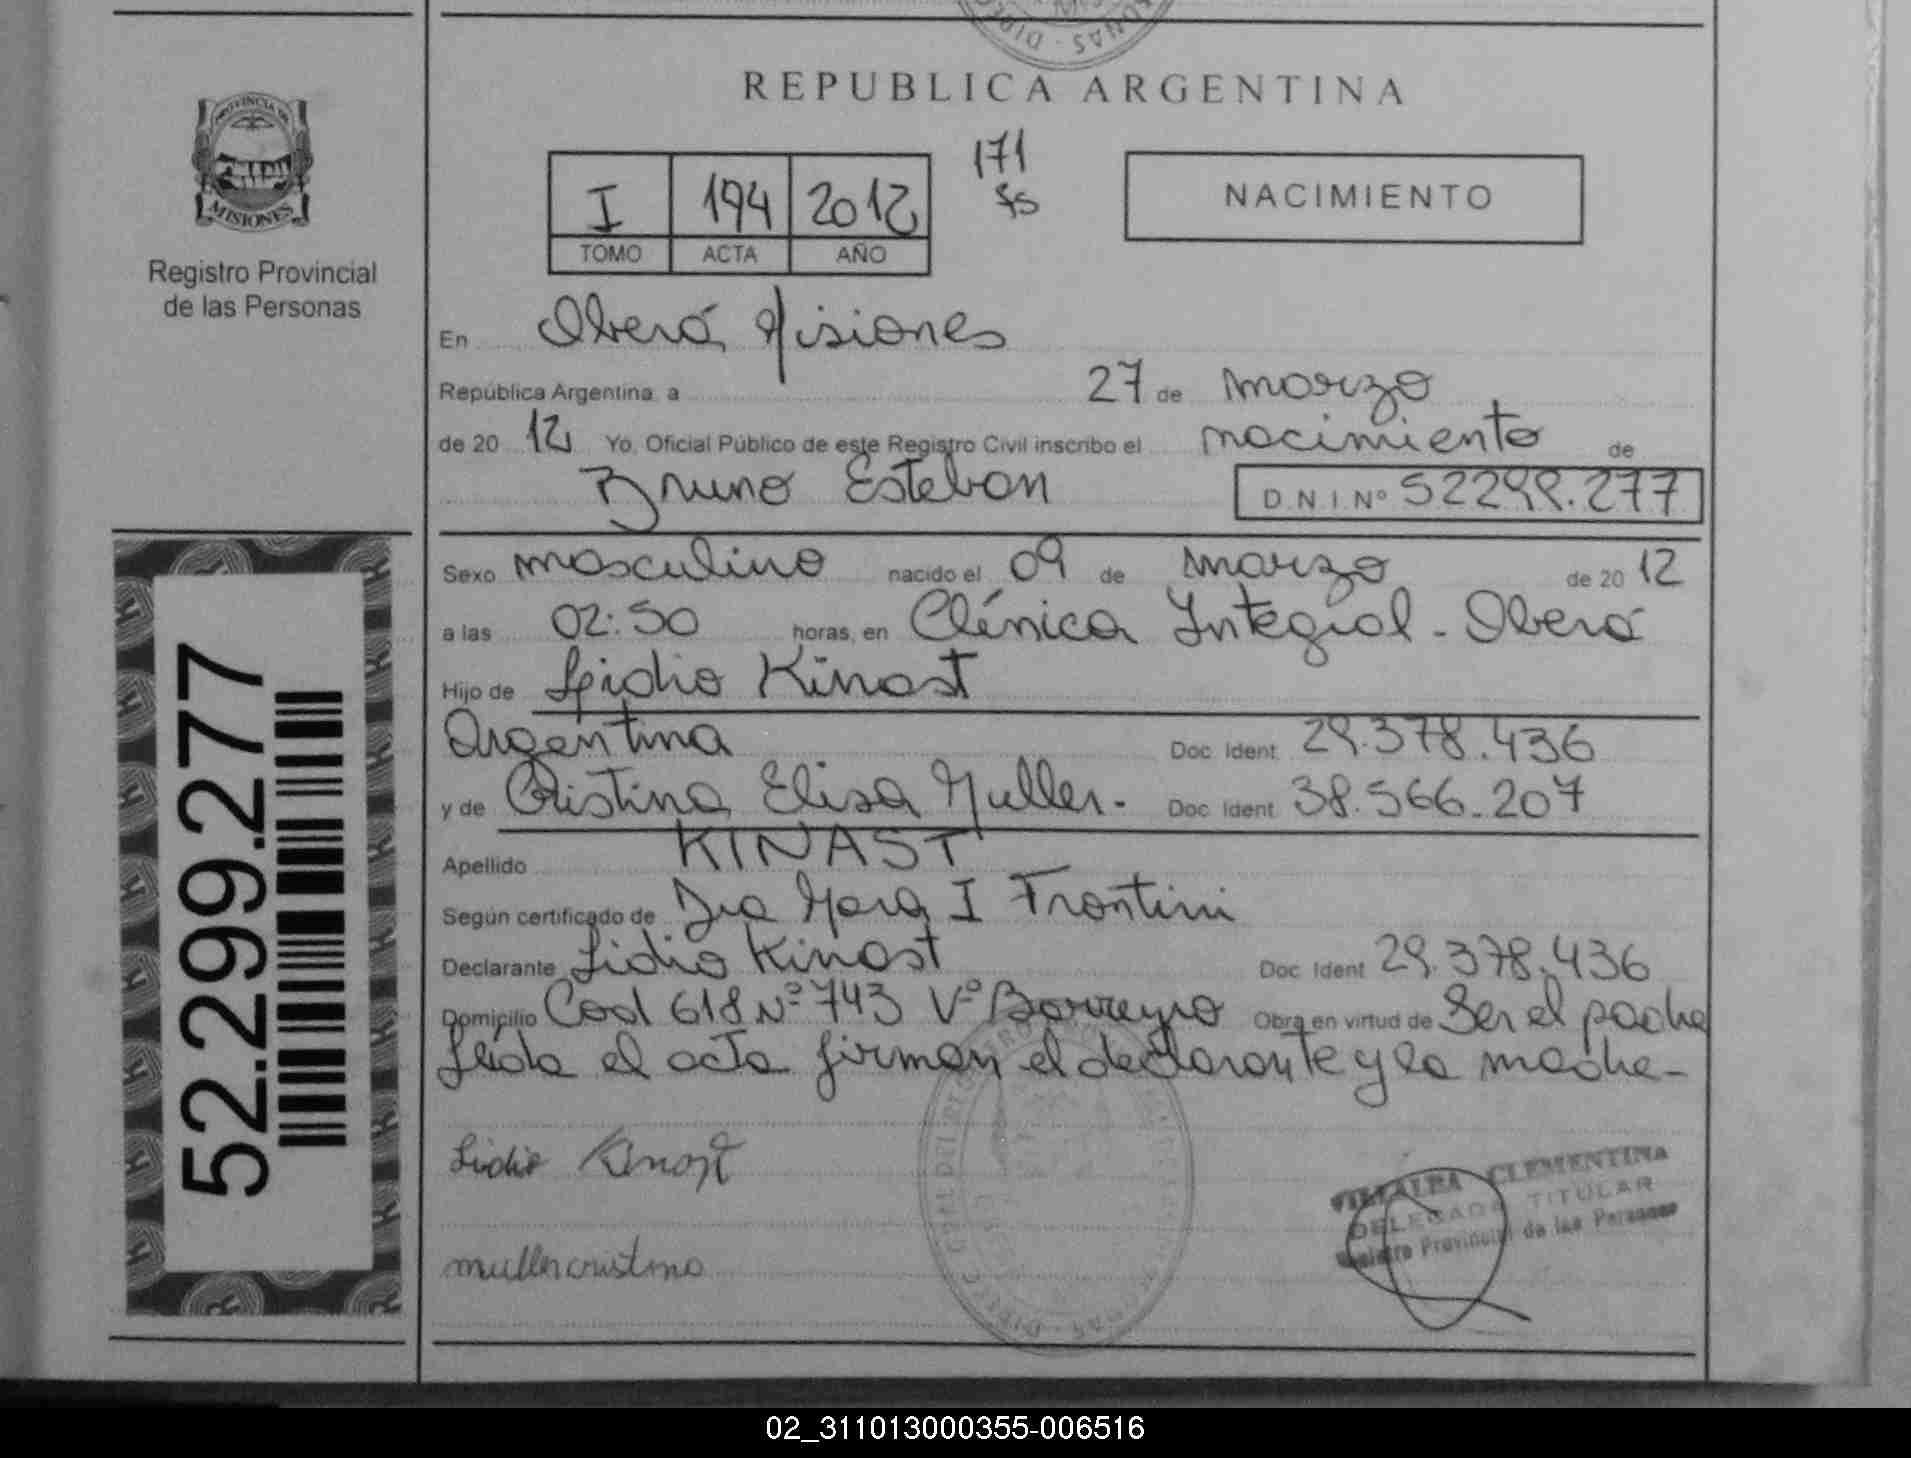 REPUBLICA ARGENTINA
PROVINCIA DE
MISIONES
Registro Provincial
de las Personas
I 194 2012
TOMO ACTA AÑO
171
fs
NACIMIENTO
En Oberá, Misiones
República Argentina, a 27 de marzo
de 20 12 Yo, Oficial Público de este Registro Civil inscribo el nacimiento de
Bruno Esteban D.N.I. Nº 52299.277
Sexo masculino nacido el 09 de marzo de 20 12
a las 02:50 horas, en Clínica Integral - Oberá
Hijo de Lidio Kinast
Argentina Doc. Ident. 29.378.436
y de Cristina Elisa Muller.- Doc. Ident. 38.566.207
Apellido KINAST
Según certificado de Dra Mara I Frontini
Declarante Lidio Kinast Doc. Ident. 29.378.436
Domicilio Cod 618 Nº 743 Vº Borreyro Obra en virtud de Ser el padre
Leída el acta firman el declarante y la madre-
Lidio Kinast
VILLALBA CLEMENTINA
DELEGADA TITULAR
Registro Provincial de las Personas
muller cristina
52.299.277
02_311013000355-006516